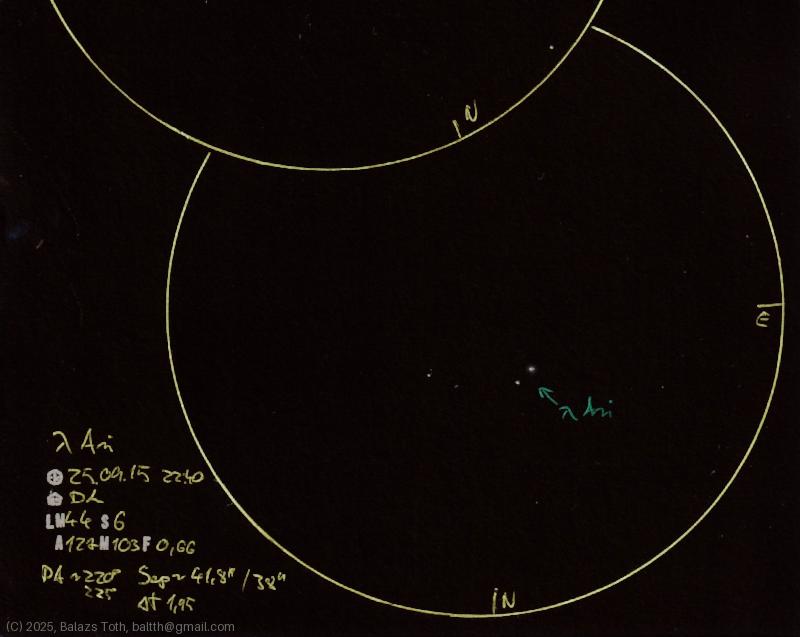 N
E
λ Ari
λ Ari
25.09.15 22:40
DL
LM 4.4 S 6
A 127 M 103 F 0,66
PA ~ 220° Sep ~ 41,8" / 38"
225
Δt 1,95
N
(C) 2025, Balazs Toth, baltth@gmail.com